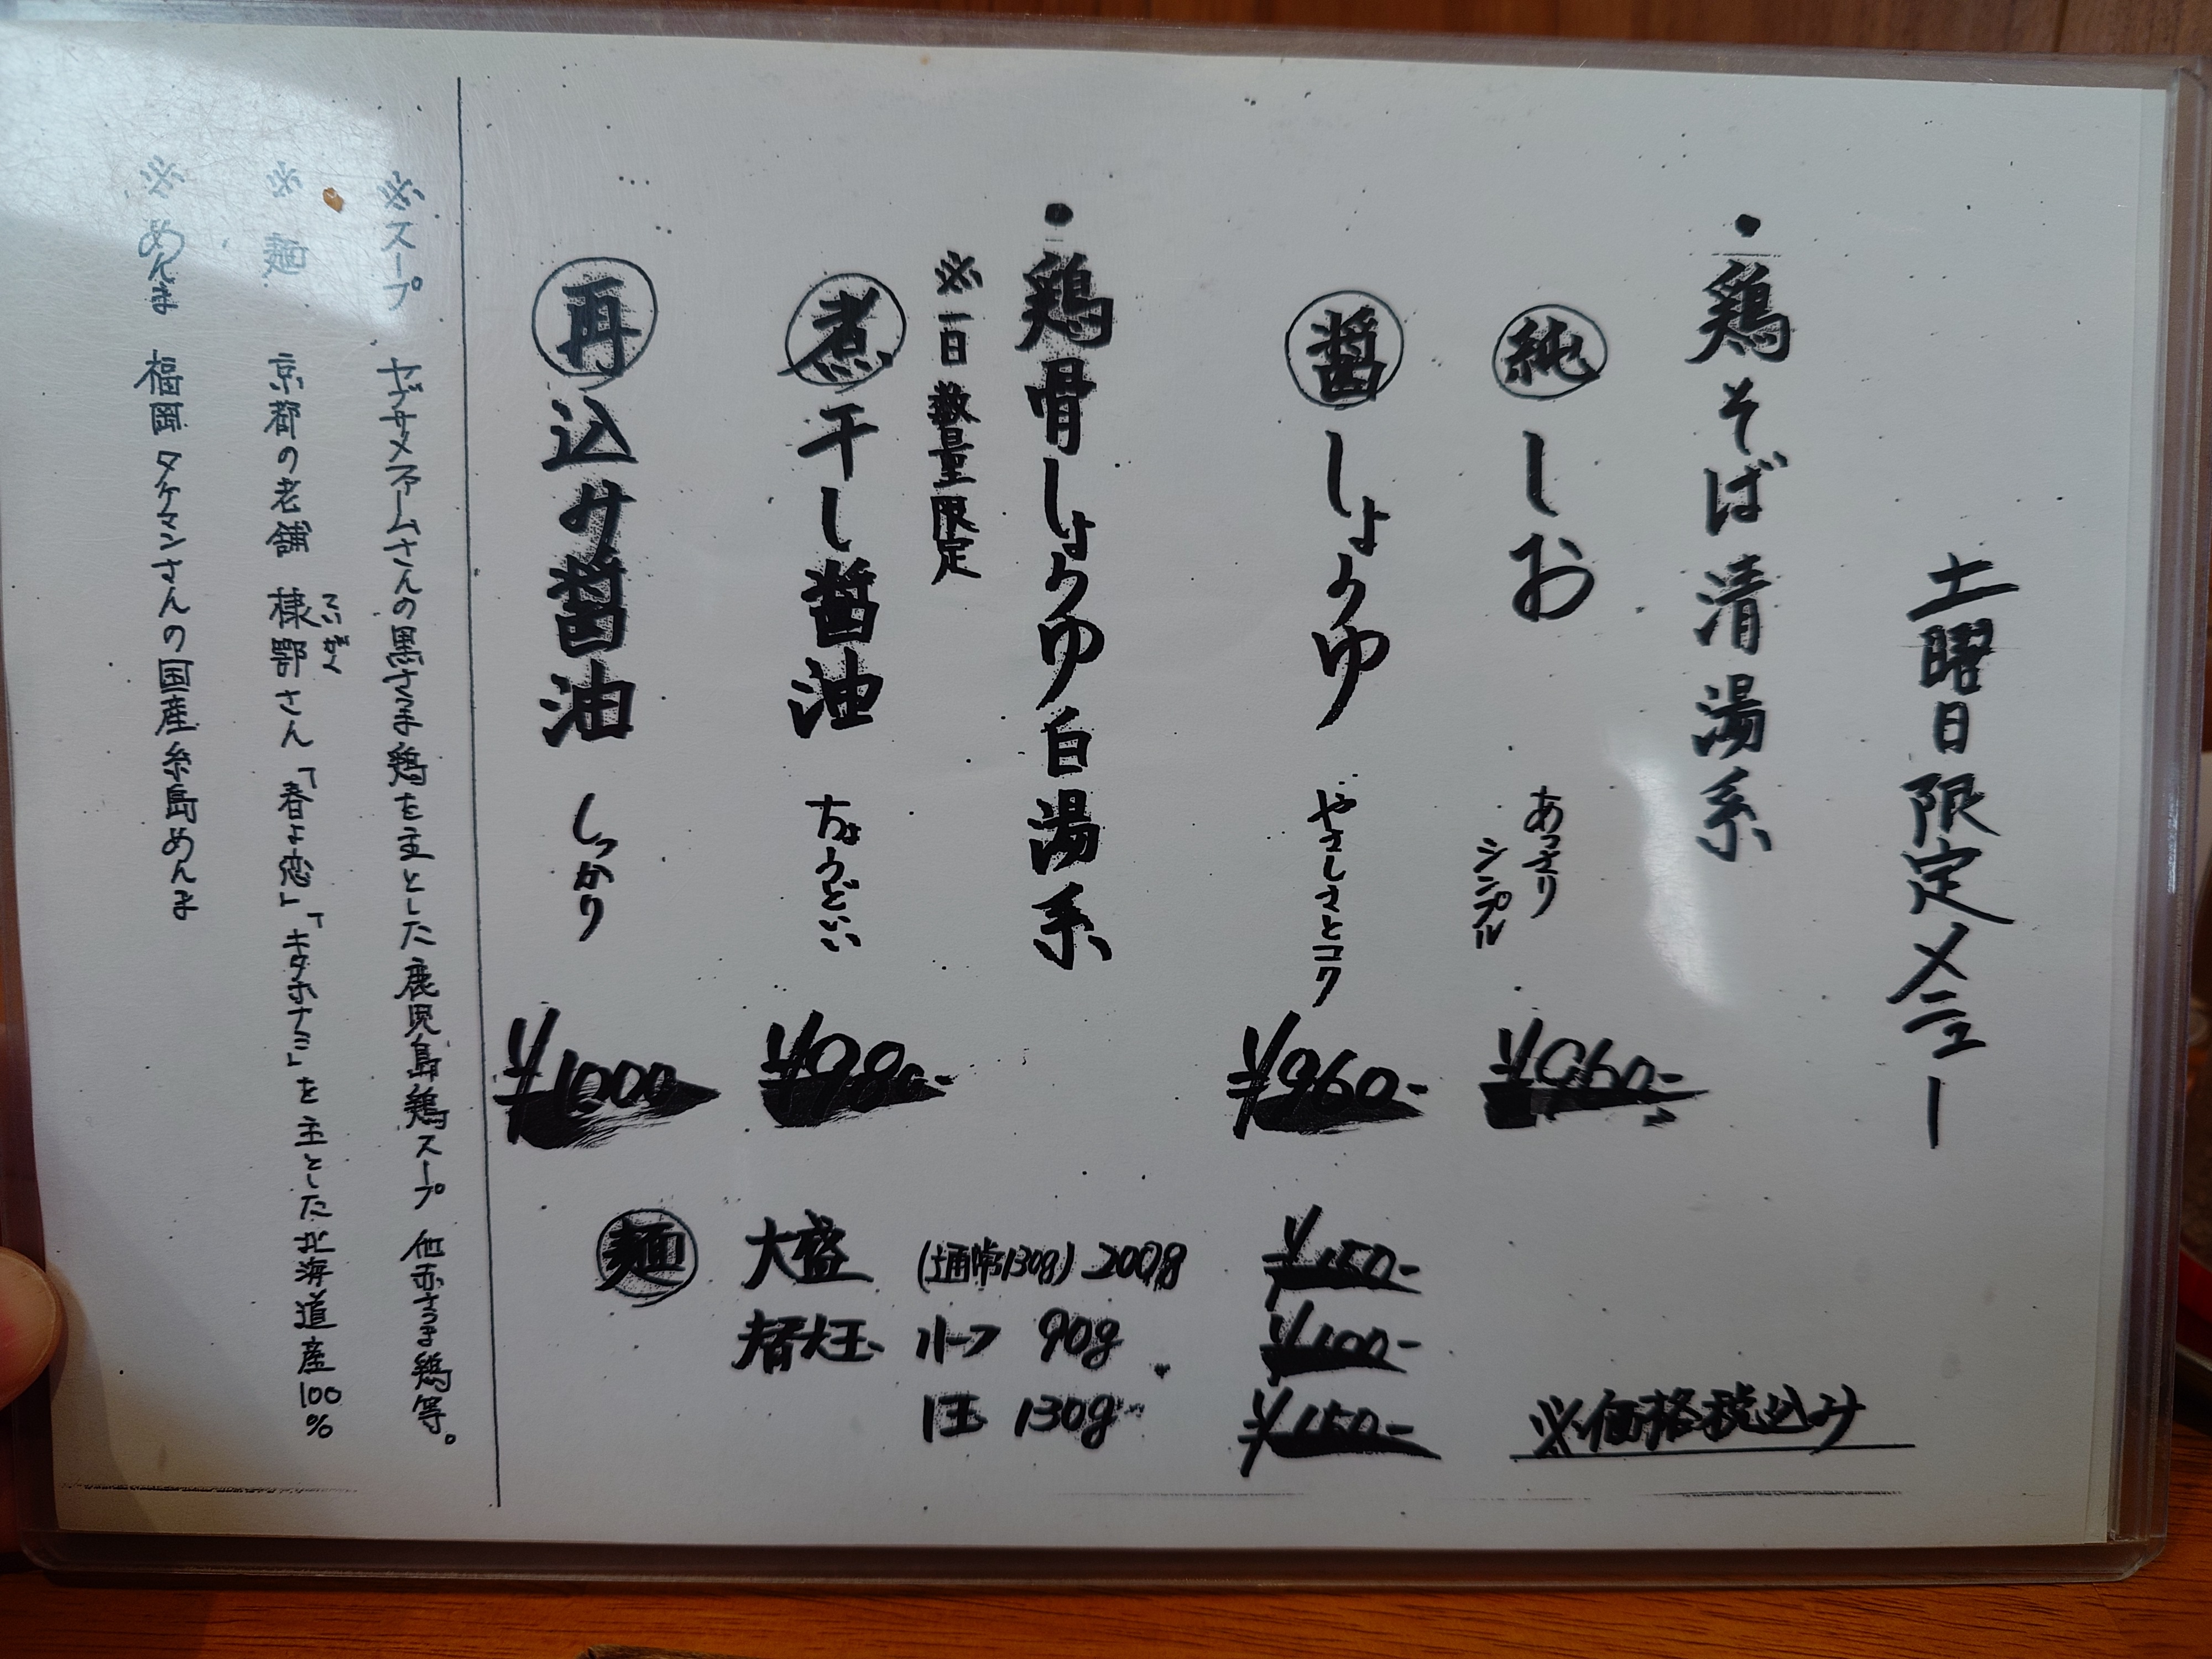 土曜日限定メニュー
・鶏そば清湯系
純しお あっさり シンプル
醤しょうゆ やさしさとコク ¥960-
・鶏骨しょうゆ白湯系
※一日数量限定
煮干し醤油 ちょうどいい ¥980-
再込み醤油 しっかり ¥1000
麺 大盛 (通常130g) 200g ¥150-
替玉 ハーフ 90g ¥100-
1玉 130g ¥150-
※価格税込み
※スープ ヤブサメファームさんの黒さつま鶏を主とした鹿児島鶏スープ 他赤さつま鶏等。
※麺 京都の老舗 棣鄂さん「春よ恋」「キタホナミ」を主とした北海道産100%
ていがく
※めんま 福岡タケマンさんの国産糸島めんま